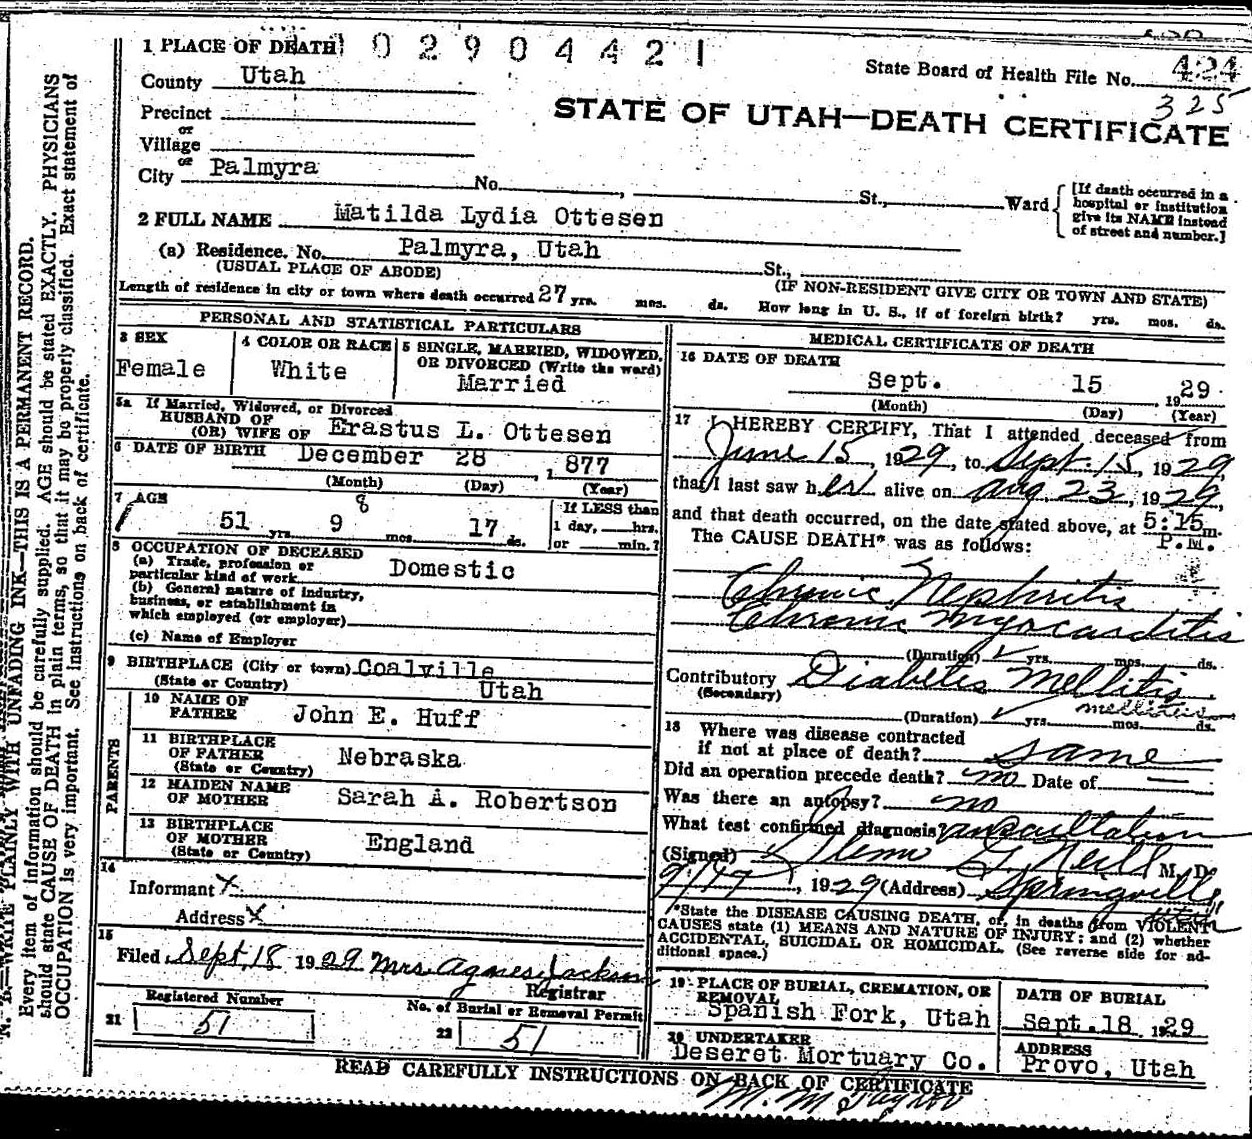 1 PLACE OF DEATH 1 0 2 9 0 4 4 2 1
State Board of Health File No. 424
325
County Utah
STATE OF UTAH—DEATH CERTIFICATE
Precinct
or
Village
or
City Palmyra No. , St., Ward
[If death occurred in a
hospital or institution
give its NAME instead
of street and number.]
2 FULL NAME Matilda Lydia Ottesen
(a) Residence. No. Palmyra, Utah St.,
(USUAL PLACE OF ABODE) (IF NON-RESIDENT GIVE CITY OR TOWN AND STATE)
Length of residence in city or town where death occurred 27 yrs. mos. ds. How long in U. S., if of foreign birth? yrs. mos. ds.
PERSONAL AND STATISTICAL PARTICULARS
3 SEX
Female
4 COLOR OR RACE
White
5 SINGLE, MARRIED, WIDOWED,
OR DIVORCED (Write the word)
Married
5a If Married, Widowed, or Divorced
HUSBAND OF
(OR) WIFE OF Erastus L. Ottesen
6 DATE OF BIRTH December 28 , 1 877
(Month) (Day) (Year)
7 AGE 8
51 yrs. 9 mos. 17 ds.
If LESS than
1 day, hrs.
or min.?
8 OCCUPATION OF DECEASED
(a) Trade, profession or
particular kind of work Domestic
(b) General nature of industry,
business, or establishment in
which employed (or employer)
(c) Name of Employer
9 BIRTHPLACE (City or town) Coalville
(State or Country) Utah
PARENTS
10 NAME OF
FATHER John E. Huff
11 BIRTHPLACE
OF FATHER
(State or Country) Nebraska
12 MAIDEN NAME
OF MOTHER Sarah A. Robertson
13 BIRTHPLACE
OF MOTHER
(State or Country) England
14
Informant x
Address x
15
Filed Sept. 18 1929 Mrs. Agnes Jackson
Registrar
Registered Number
21 51
No. of Burial or Removal Permit
22 51
MEDICAL CERTIFICATE OF DEATH
16 DATE OF DEATH
Sept. 15 , 19 29
(Month) (Day) (Year)
17 I HEREBY CERTIFY, That I attended deceased from
June 15, 1929, to Sept. 15, 1929,
that I last saw her alive on Aug 23, 1929,
and that death occurred, on the date stated above, at 5:15 m.
P.M.
The CAUSE DEATH* was as follows:
Chronic Nephritis
Chronic Myocarditis
(Duration) yrs. mos. ds.
Contributory Diabetis Mellitis
(Secondary) mellitus
(Duration) yrs. mos. ds.
18 Where was disease contracted
if not at place of death? same
Did an operation precede death? no Date of —
Was there an autopsy? no
What test confirmed diagnosis? auscultation
(Signed) M. D.
9/17, 1929 (Address) Springville
Utah
*State the DISEASE CAUSING DEATH, or, in deaths from VIOLENT
CAUSES state (1) MEANS AND NATURE OF INJURY; and (2) whether
ACCIDENTAL, SUICIDAL OR HOMICIDAL. (See reverse side for ad-
ditional space.)
19 PLACE OF BURIAL, CREMATION, OR
REMOVAL
Spanish Fork, Utah
DATE OF BURIAL
Sept. 18 1929
20 UNDERTAKER
Deseret Mortuary Co.
ADDRESS
Provo, Utah
READ CAREFULLY INSTRUCTIONS ON BACK OF CERTIFICATE
N. B.—WRITE PLAINLY WITH UNFADING INK—THIS IS A PERMANENT RECORD.
Every item of information should be carefully supplied. AGE should be stated EXACTLY. PHYSICIANS
should state CAUSE OF DEATH in plain terms, so that it may be properly classified. Exact statement of
OCCUPATION is very important. See instructions on back of certificate.